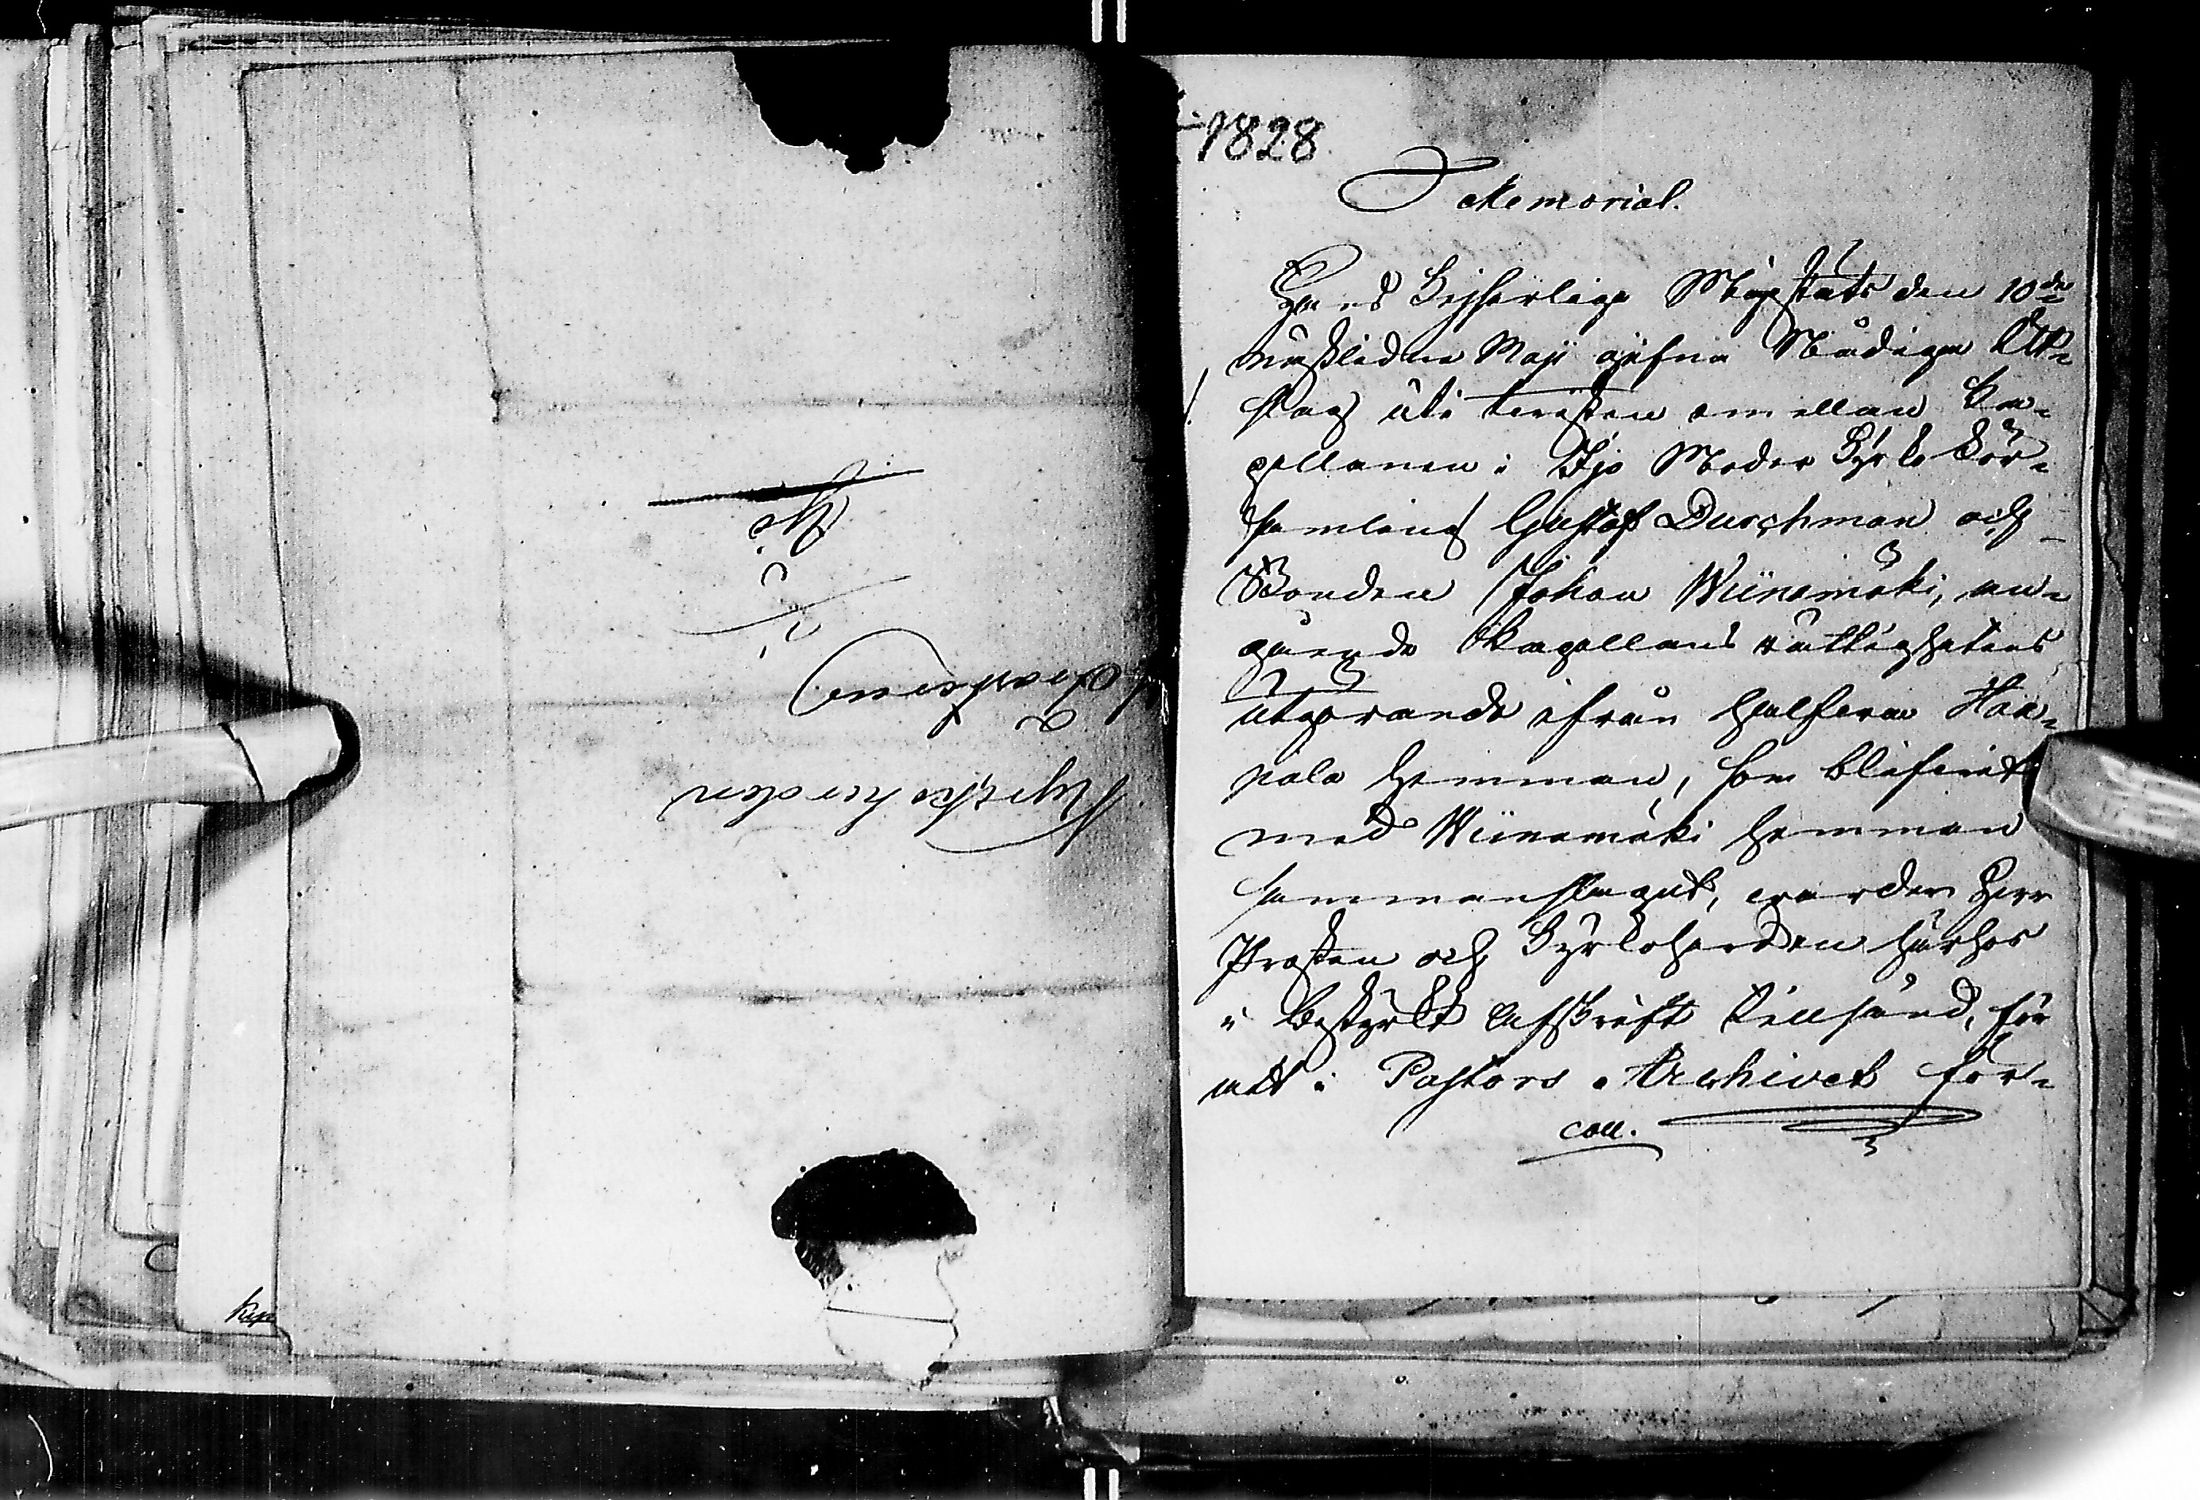 Kyrkoherden
i
Ijo
kap
1828
Memorial.
Hans Kejserliga Majestäts den 10de
nästledne Maji gifna Nådiga Ut-
slag uti twisten emellan Ka-
pellanen i Ijo Moder Kyrko För-
samling Gustaf Durchman och
Bonden Johan Wiinamäki, an-
gående Kapellans rättighetens
utgörande ifrån halfwa Haa-
pala hemman, som blifwit
med Wiinamäki hemman
sammanslagit, warder Herr
Prosten och Kyrkoherden härhos
i bestyrkt afskrift tillsänd, för
att i Pastors Archivet för-
coll.